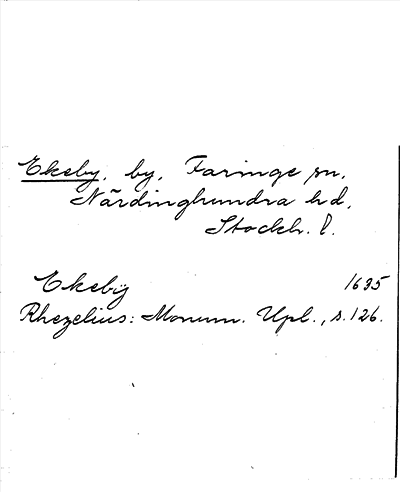 Ekeby, by, Faringe sn,
Närdinghundra hd,
Stockh. l.
Ekebÿ 1635
Rhezelius: Monum. Upl., s. 126.